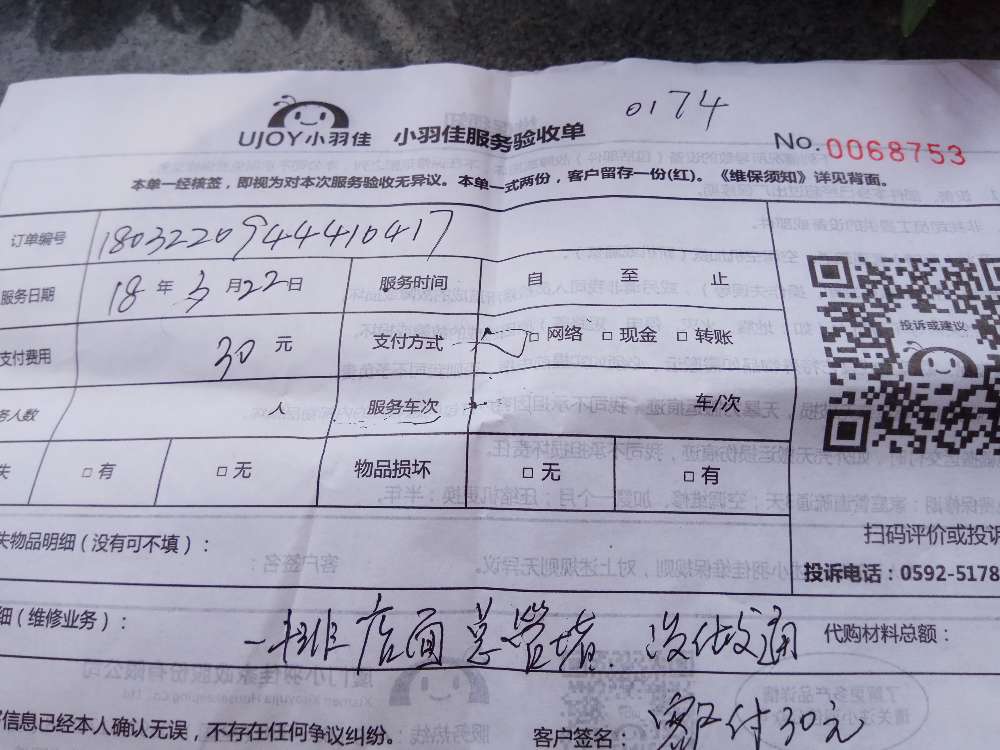 0174
UJOY小羽佳 小羽佳服务验收单 No. 0068753
本单一经核签，即视为对本次服务验收无异议。本单一式两份，客户留存一份(红)。《维保须知》详见背面。
订单编号 1803220944410417
服务日期 18 年 3 月 22 日 服务时间 自 至 止
投诉或建议
支付费用 30 元 支付方式 □ 网络 □ 现金 □ 转账
务人数 人 服务车次 车/次
失 □ 有 □ 无 物品损坏 □ 无 □ 有
扫码评价或投诉
失物品明细（没有可不填）：
投诉电话：0592-5178
细（维修业务）： 一排店面总管堵. 没做通 代购材料总额：
信息已经本人确认无误，不存在任何争议纠纷。 客户签名： 客户付30元